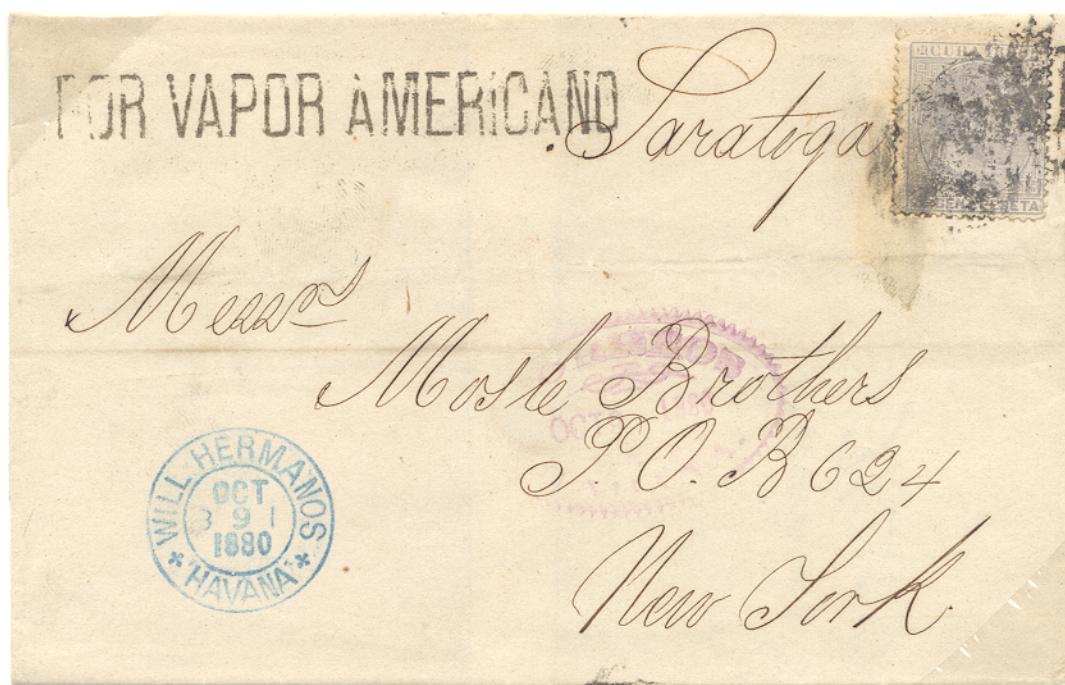 POR VAPOR AMERICANO
Saratoga
CUBA
PESETA
Messrs
Mosle Brothers
P.O.B 624
New York.
WILL HERMANOS
OCT
9
1880
HAVANA